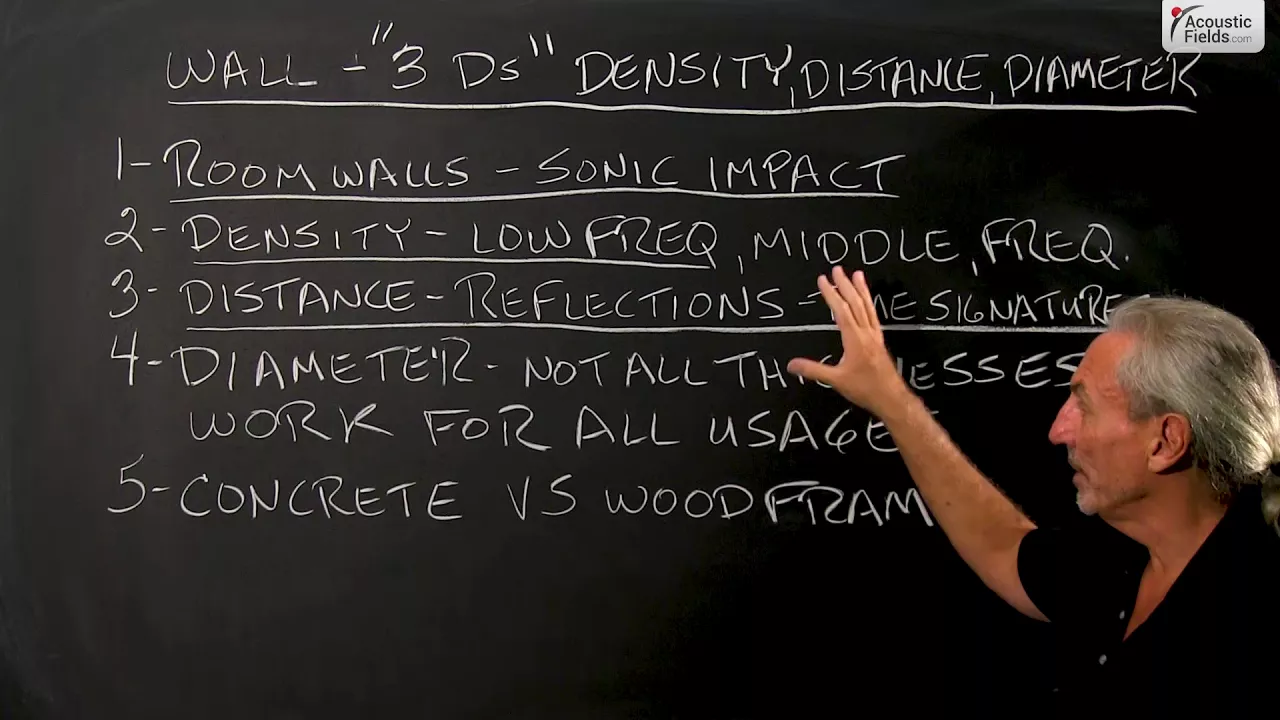 Acoustic
Fields.com
WALL - "3 Ds" DENSITY, DISTANCE, DIAMETER
1- ROOM WALLS - SONIC IMPACT
2- DENSITY - LOW FREQ, MIDDLE, FREQ.
3- DISTANCE - REFLECTIONS - SIGNATURE
4- DIAMETER - NOT ALL
WORK FOR ALL USAGE
5- CONCRETE VS WOOD FRAM